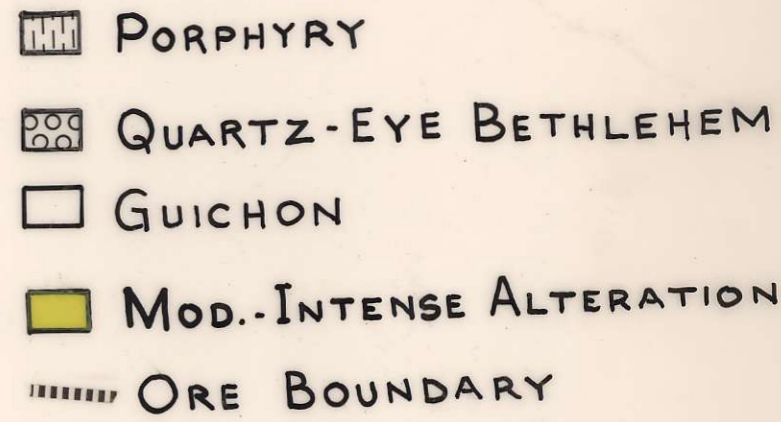 PORPHYRY
QUARTZ-EYE BETHLEHEM
GUICHON
MOD.-INTENSE ALTERATION
ORE BOUNDARY